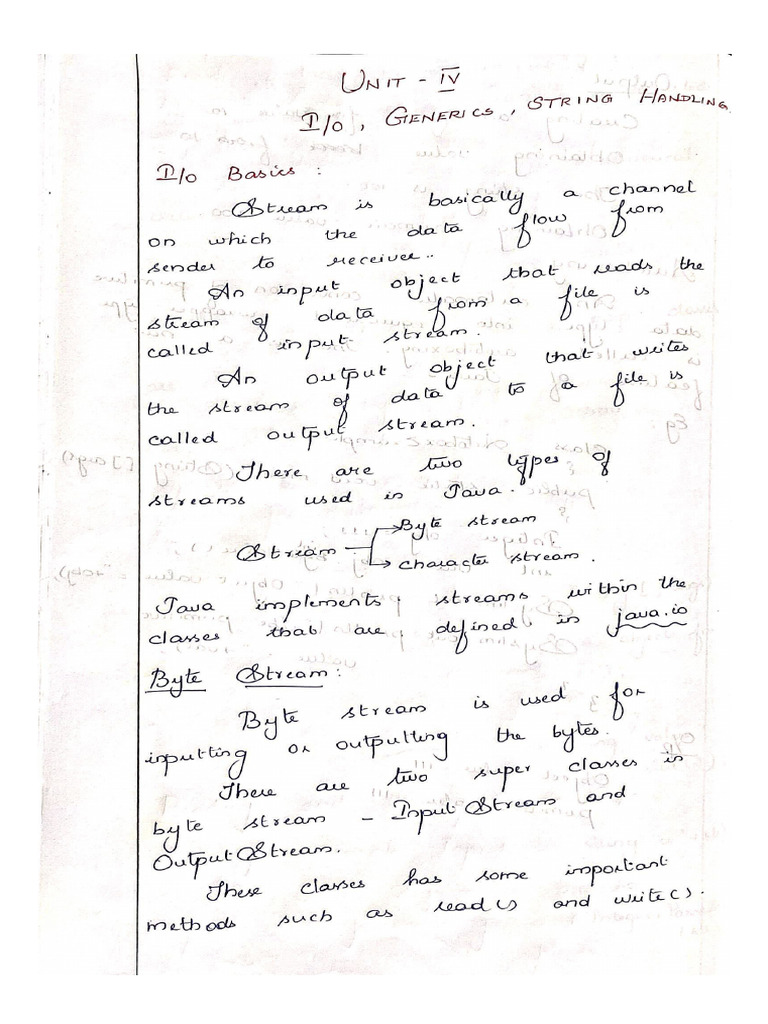 UNIT - IV
I/O, GENERICS, STRING HANDLING
I/O Basics :
Stream is basically a channel
on which the data flow from
sender to receiver..
An input object that reads the
stream of data from a file is
called input stream.
An output object that writes
the stream of data to a file is
called output stream.
There are two types of
streams used in Java.
Byte stream
Stream
character stream.
Java implements streams within the
classes that are defined in java.io
Byte Stream:
Byte stream is used for
inputting or outputting the bytes.
There are two super classes in
byte stream - InputStream and
OutputStream.
These classes has some important
methods such as read() and write().